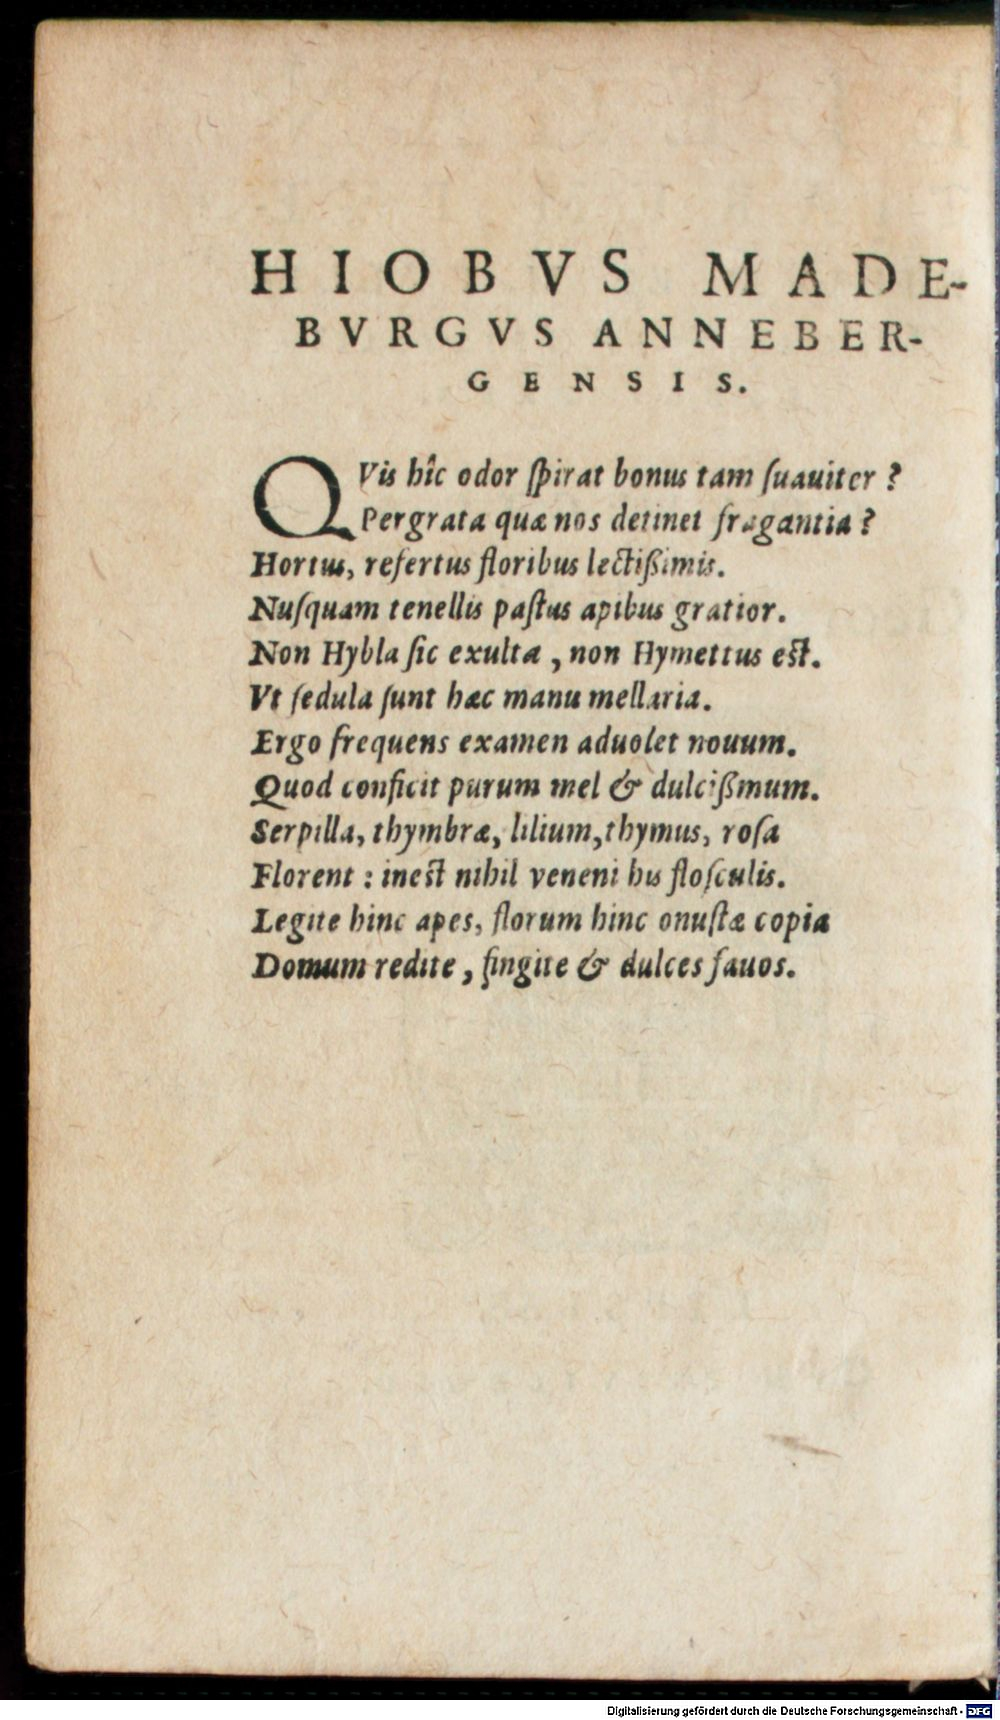 HIOBVS MADE-
BVRGVS ANNEBER-
GENSIS.
QVis hîc odor ſpirat bonus tam ſuauiter?
Pergrata quæ nos detinet fragantia?
Hortus, refertus floribus lectißimis.
Nuſquam tenellis paſtus apibus gratior.
Non Hybla ſic exulta, non Hymettus est.
Vt ſedula ſunt hæc manu mellaria.
Ergo frequens examen aduolet nouum.
Quod conficit purum mel & dulcißmum.
Serpilla, thymbræ, lilium, thymus, roſa
Florent: inest nihil veneni his floſculis.
Legite hinc apes, florum hinc onuſtæ copia
Domum redite, fingite & dulces fauos.
Digitalisierung gefördert durch die Deutsche Forschungsgemeinschaft - DFG